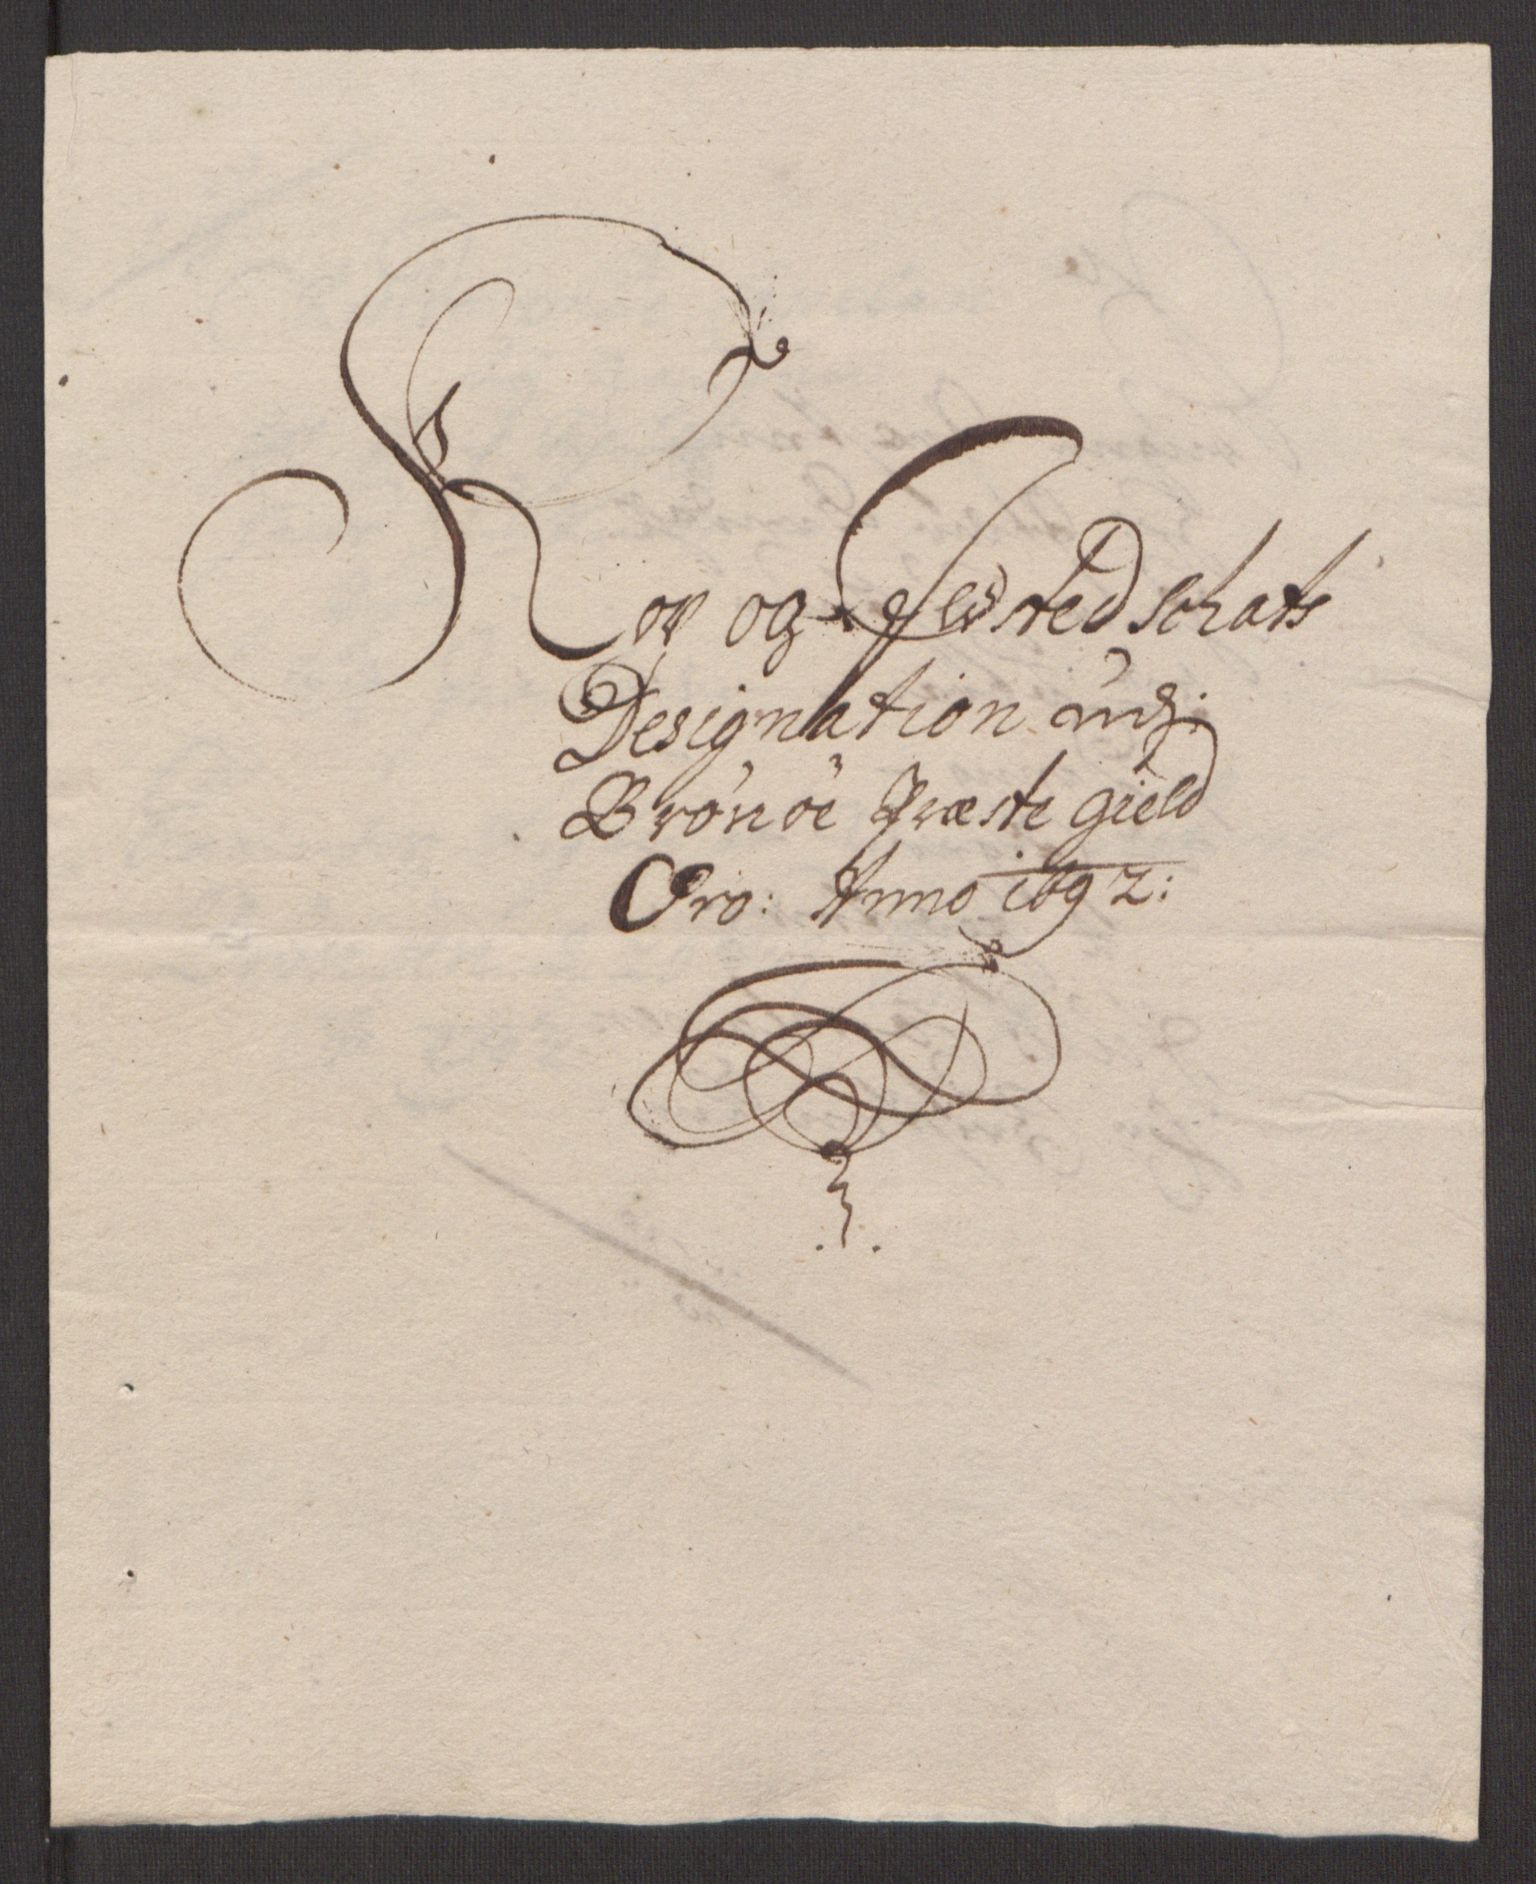 Rop og Jldsted schats
Designation udj
Brönöe Præste gield
Pro: Anno 1692: